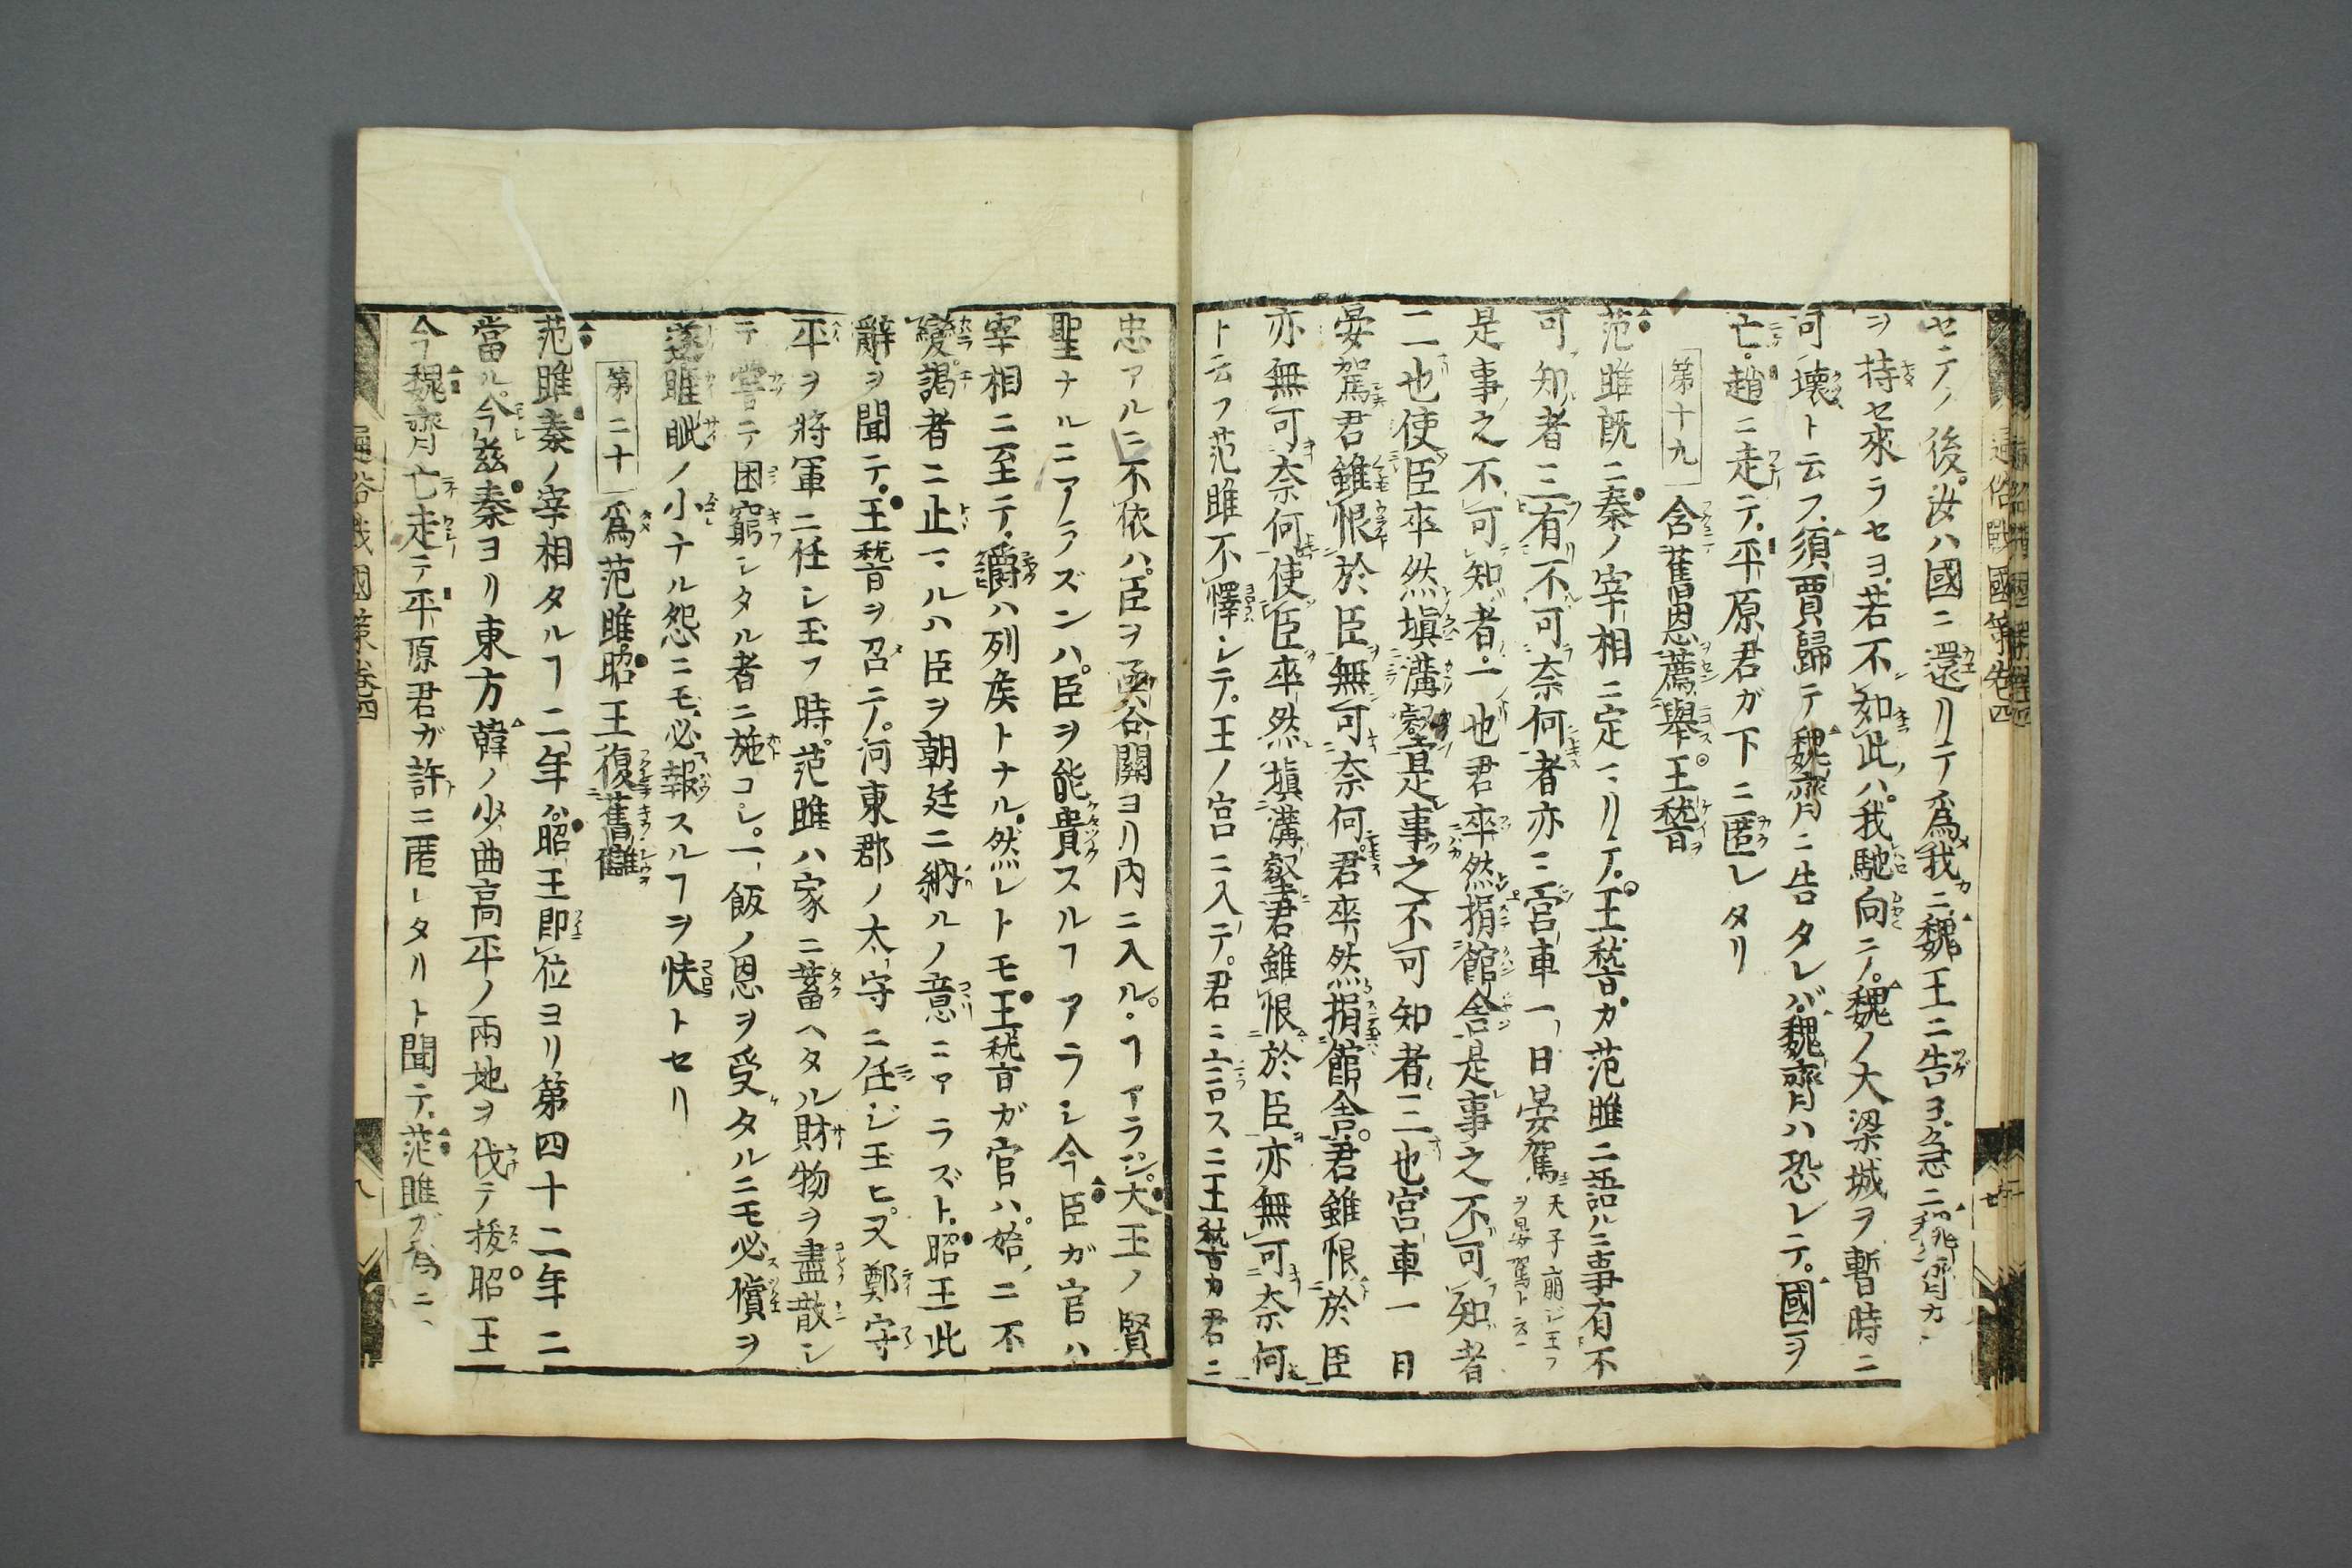 セテノ後。汝ハ國ニ還リテ爲我ニ魏王ニ告ヨ急ニ魏齊カ
ヲ持セ來ラセヨ。若不知此ハ。我馳向ニテ。魏ノ大梁城ヲ暫時ニ
可壊ト云フ。須賈歸テ魏齊ニ告タレバ。魏齊ハ恐レテ。國ヲ
亡。趙ニ走テ。平原君ガ下ニ匿レタリ
第十九 含舊恩薦舉王稽
范雎既ニ秦ノ宰相ニ定ニリテ。王稽カ范雎ニ語ルニ事有不
可知者三有不可奈何者亦三宮車一日晏駕天子崩ジ玉フヲ晏駕ト云
是事之不可知者一也君卒然捐館舍是事之不可知者
二也使臣卒然塡溝壑是事之不可知者三也宮車一日
晏駕君雖恨於臣無可奈何。君卒然捐館舍。君雖恨於臣
亦無可奈何使臣卒然塡溝壑君雖恨於臣亦無可奈何
ト云フ范雎不懌シテ。王ノ宮ニ入テ。君ニ言スニ王稽カ君ニ
忠アルニ不依ハ。臣ヲ函谷關ヨリ內ニ入ル。ヿアラン。大王ノ賢
聖ナルニアラズンハ。臣ヲ能貴スルヿアラシ今臣ガ官ハ
宰相ニ至テ。爵ハ列矦トナル。然レトモ王稽ガ官ハ。始ニ不
變。謁者ニ止ニルハ臣ヲ朝廷ニ納ルノ意ニアラズト。昭王此
辭ヲ聞テ。王稽ヲ召ニテ。河東郡ノ太守ニ任ジ玉ヒ。又鄭安
平ヲ將軍ニ任シ玉フ時。范雎ハ家ニ蓄ヘタル財物ヲ盡散シ
テ嘗テ困窮シタル者ニ施コシ。一飯ノ恩ヲ受タルニモ必償ヲ
遂睚眦ノ小ナル怨ニモ。必報スルヿヲ快トセリ
第二十 爲范雎昭王復舊讎
范雎秦ノ宰相タルヿ二年。昭王卽位ヨリ第四十二年ニ
當ル。今玆秦ヨリ東方韓ノ少曲高平ノ兩地ヲ伐テ拔。昭王
今魏齊亡走テ平原君ガ許ニ匿レタリト聞テ。范雎ガ爲ニ
通俗戰國策卷四
八